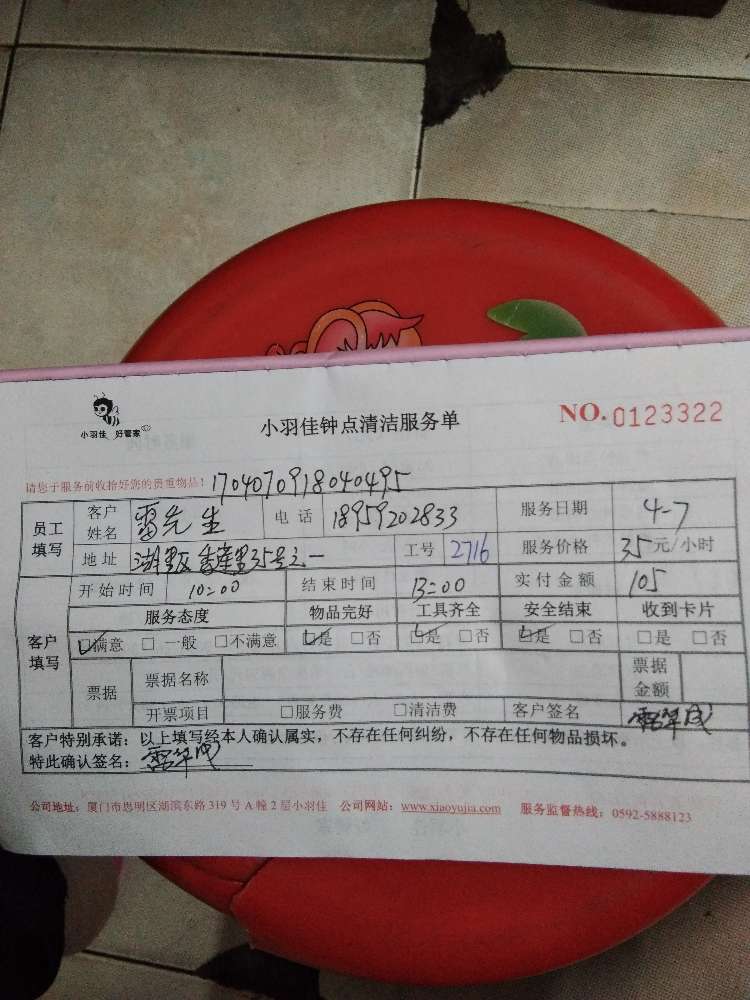 小羽佳 好管家
小羽佳钟点清洁服务单
NO. 0123322
请您于服务前收拾好您的贵重物品! 170407091804049 5
员工填写 客户姓名 雷先生 电话 18959202833 服务日期 4-7
地址 35号之一 工号 2716 服务价格 35元/小时
客户填写 开始时间 10:00 结束时间 13:00 实付金额 105
服务态度 物品完好 工具齐全 安全结束 收到卡片
☑满意 □ 一般 □不满意 ☑是 □否 ☑是 □否 ☑是 □否 □是 □否
票据 票据名称 票据金额
开票项目 □服务费 □清洁费 客户签名
客户特别承诺：以上填写经本人确认属实，不存在任何纠纷，不存在任何物品损坏。
特此确认签名：
公司地址：厦门市思明区湖滨东路 319 号 A 幢 2 层小羽佳 公司网站：www.xiaoyujia.com 服务监督热线：0592-5888123